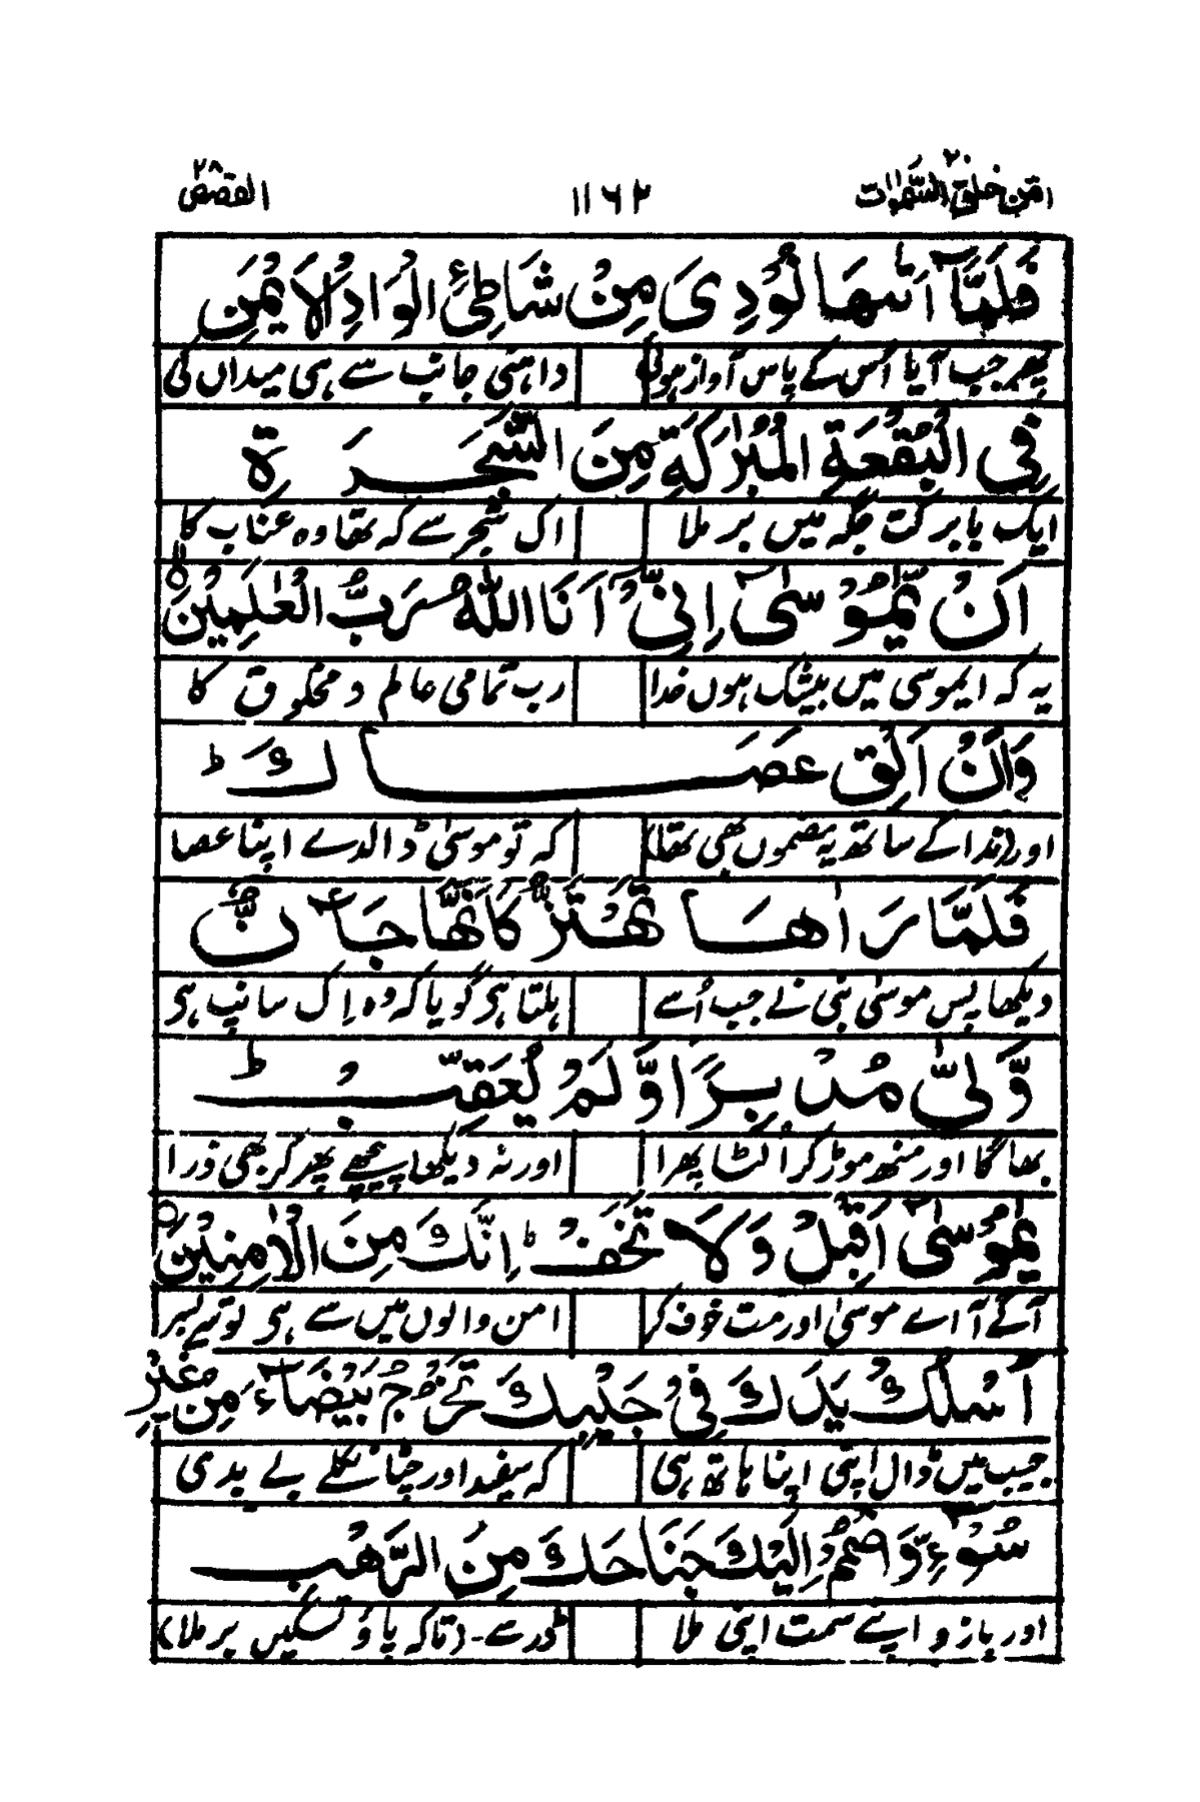 امّن خلق السّمٰوٰت ۲۰ ۱۱۶۲ القصص ۲۸
فَلَمَّآ اَتٰىهَا نُوْدِیَ مِنْ شَاطِئِ الْوَادِ الْاَیْمَنِ
پھر جب آیا اُس کے پاس آواز ہوئی داہنی جانب سے ہی میداں کی
فِی الْبُقْعَةِ الْمُبٰرَكَةِ مِنَ الشَّجَرَةِ
ایک بابرکت جگہ میں بر ملا اک شجر سے کہ تھا وہ عناب کا
اَنْ یّٰمُوْسٰۤی اِنِّیْۤ اَنَا اللّٰهُ رَبُّ الْعٰلَمِیْنَۙ
یہ کہ ایموسی میں بیشک ہوں خدا رب تمامی عالم و مخلوق کا
وَاَنْ اَلْقِ عَصَاكَ ؕ
اور (ندا کے ساتھ یہ مضموں بھی تھا) کہ تو موسیٰ ڈالدے اپنا عصا
فَلَمَّا رَاٰهَا تَهْتَزُّ كَاَنَّهَا جَآنٌّ
دیکھا پس موسیٰ نبی نے جب اُسے ہلتا ہی گویا کہ وہ اِک سانپ ہی
وَّلّٰی مُدْبِرًا وَّلَمْ یُعَقِّبْ ؕ
بھاگا اور منھ موڑ کر اُلٹا پھرا اور نہ دیکھا پیچھے پھر کر بھی ذرا
یٰمُوْسٰۤی اَقْبِلْ وَلَا تَخَفْ ؕ اِنَّكَ مِنَ الْاٰمِنِیْنَ
آگے آ اے موسیٰ اور مت خوف کر امن والوں میں سے ہی تو
اُسْلُكْ یَدَكَ فِیْ جَیْبِكَ تَخْرُجْ بَیْضَآءَ مِنْ غَیْرِ
جیب میں ڈال اپنی اپنا ہاتھ ہی کہ سفید اور چٹا نکلے بے بدی
سُوْٓءٍ وَّاضْمُمْ اِلَیْكَ جَنَاحَكَ مِنَ الرَّهْبِ
اور بازو اپنے سمت اپنی ملا ڈر سے ۔ (تاکہ پاؤ تسکیں برملا)